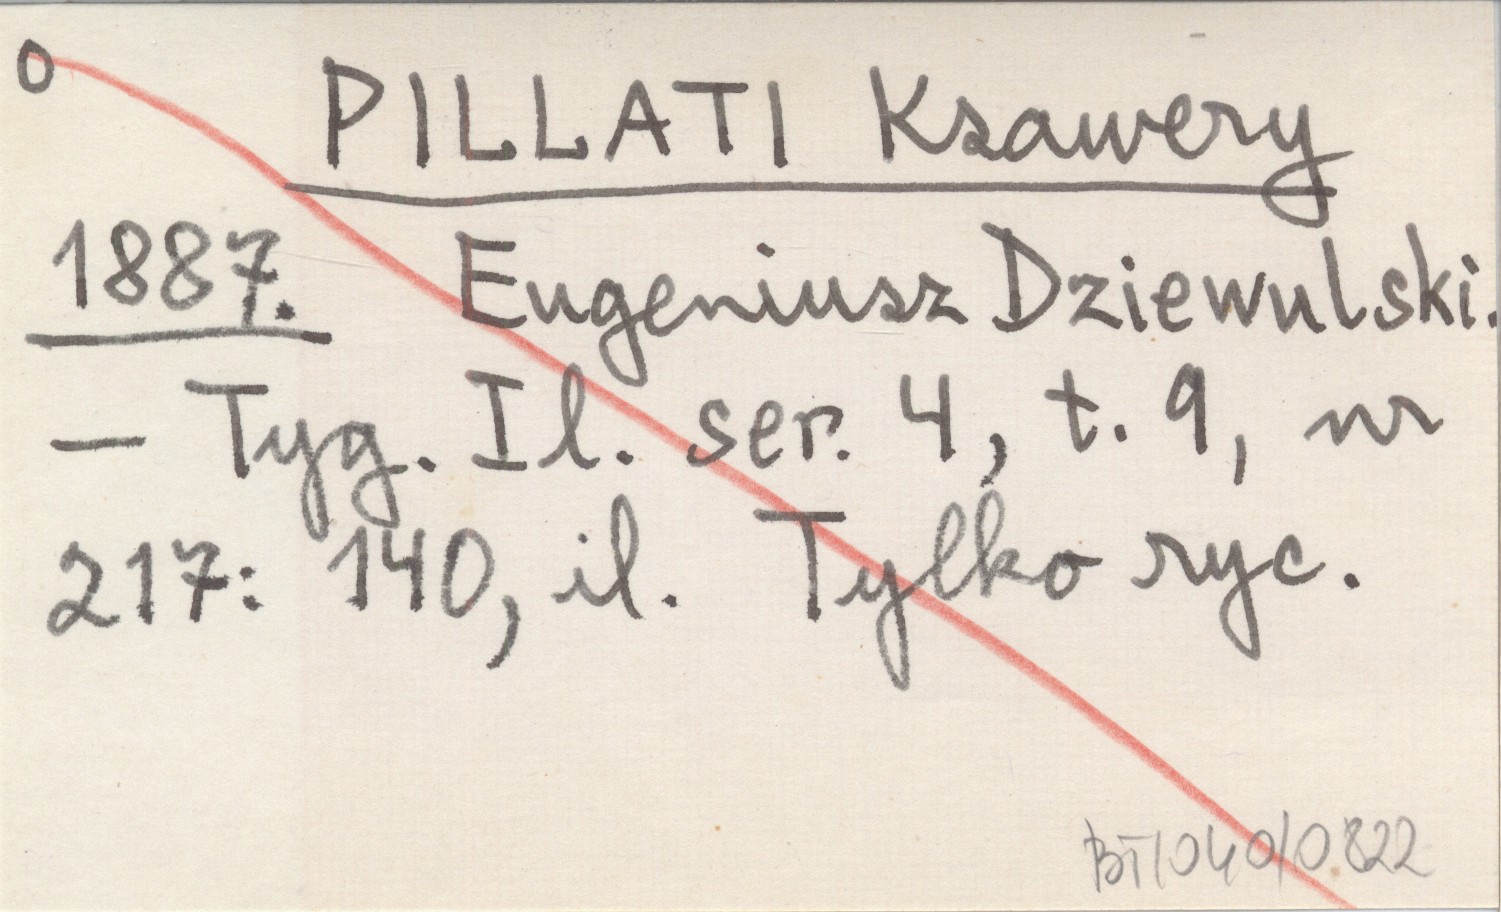 O PILLATI Ksawery
1887. Eugeniusz Dziewulski.
— Tyg. Il. ser. 4, t. 9, nr
217: 140, il. Tylko ryc.
BT/040/0822